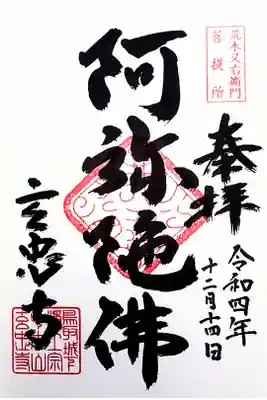 荒木又右衛門
菩提所
奉拝
令和四年
十二月十四日
阿弥陀佛
玄忠寺
鳥取城下